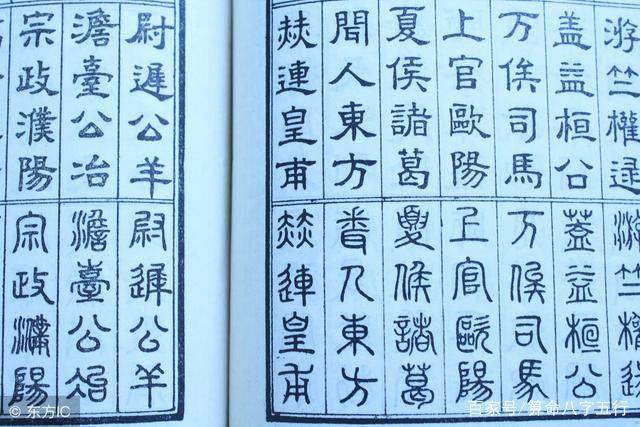 游竺權逯
盖益桓公
万俟司馬
上官歐陽
夏侯諸葛
聞人東方
赫連皇甫
游竺權逯
蓋益桓公
万俟司馬
上官歐陽
夏侯諸葛
聞人東方
赫連皇甫
尉遲公羊
澹臺公冶
宗政濮陽
尉遲公羊
澹臺公冶
宗政濮陽
© 东方IC
百家号/算命八字五行